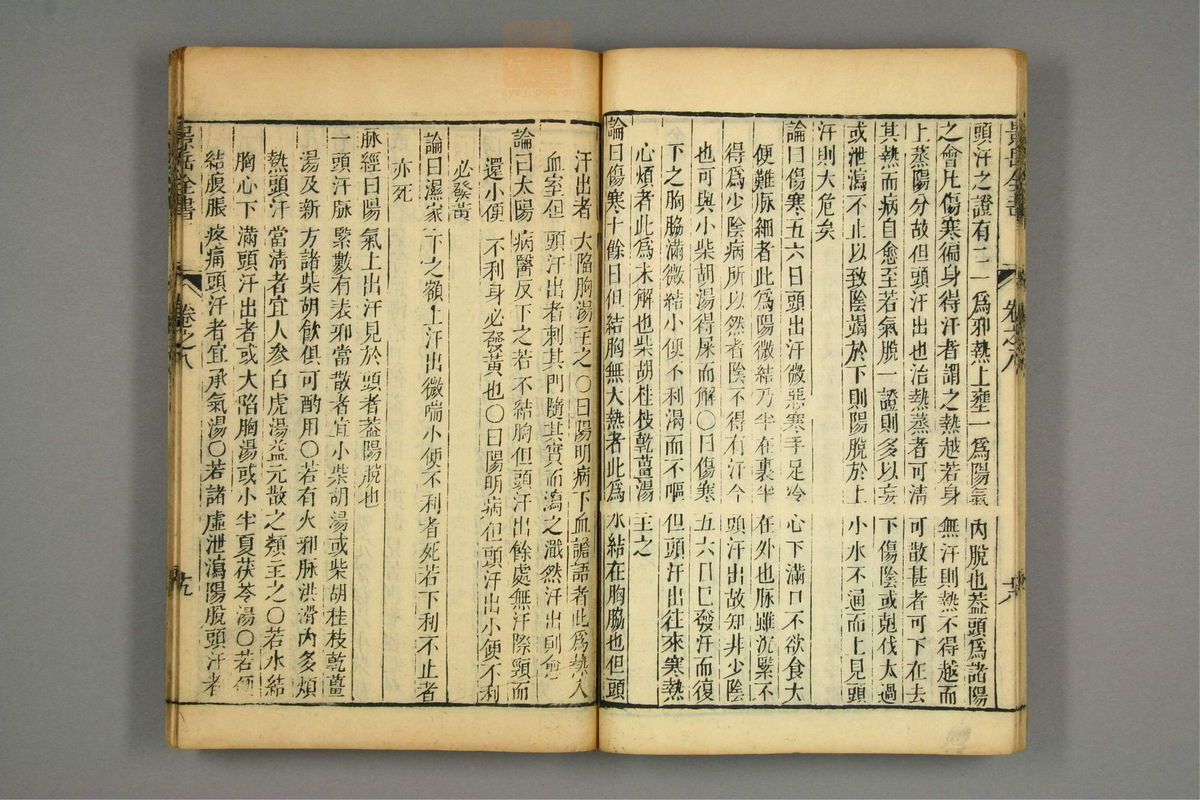 景岳全書 卷之八 十八
頭汗之證有二一爲邪熱上壅一爲陽氣內脫也蓋頭爲諸陽
之會凡傷寒徧身得汗者謂之熱越若身無汗則熱不得越而
上蒸陽分故但頭汗出也治熱蒸者可淸可散甚者可下在去
其熱而病自愈至若氣脫一證則多以妄下傷陰或剋伐太過
或泄瀉不止以致陰竭於下則陽脫於上小水不通而上見頭
汗則大危矣
論曰傷寒五六日頭出汗微惡寒手足冷心下滿口不欲食大
便難脉細者此爲陽微結乃半在裏半在外也脉雖沉緊不
得爲少陰病所以然者陰不得有汗今頭汗出故知非少陰
也可與小柴胡湯得屎而解○曰傷寒五六日已發汗而復
下之胸脇滿微結小便不利渴而不嘔但頭汗出往來寒熱
心煩者此爲未解也柴胡桂枝乾薑湯主之
論曰傷寒十餘日但結胸無大熱者此爲水結在胸脇也但頭
汗出者大陷胸湯主之○曰陽明病下血譫語者此爲熱入
血室但頭汗出者刺其門隨其實而瀉之濈然汗出則愈
論曰太陽病醫反下之若不結胸但頭汗出餘處無汗際頸而
還小便不利身必發黃也○曰陽明病但頭汗出小便不利
必發黃
論曰濕家下之額上汗出微喘小便不利者死若下利不止者
亦死
脉經曰陽氣上出汗見於頭者葢陽脫也
一頭汗脉緊數有表邪當散者宜小柴胡湯或柴胡桂枝乾薑
湯及新方諸柴胡飲俱可酌用○若有火邪脉洪滑內多煩
熱頭汗當淸者宜人參白虎湯益元散之類主之○若水結
胸心下滿頭汗出者或大陷胸湯或小半夏茯苓湯○若便
結腹脹疼痛頭汗者宜承氣湯○若諸虛泄瀉陽脫頭汗者
景岳全書 卷之八 十九